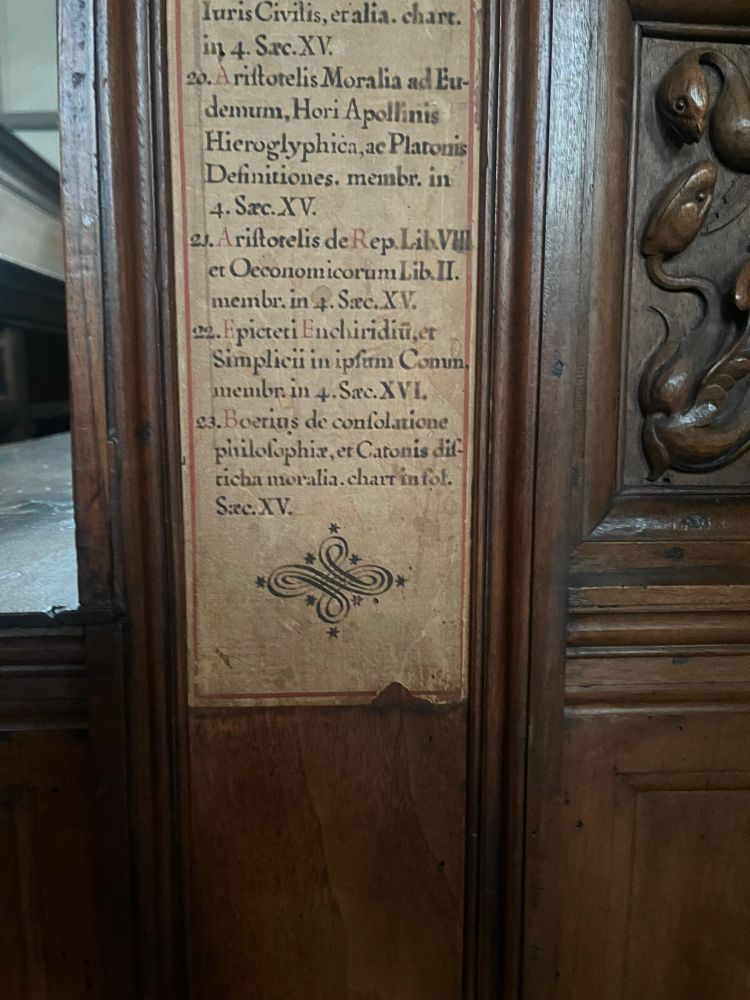 Iuris Civilis, et alia. chart.
in 4. Sæc. XV.
20. Aristotelis Moralia ad Eu-
demum, Hori Apollinis
Hieroglyphica, ac Platonis
Definitiones. membr. in
4. Sæc. XV.
21. Aristotelis de Rep. Lib. VIII
et Oeconomicorum Lib. II.
membr. in 4. Sæc. XV.
22. Epicteti Enchiridiũ, et
Simplicii in ipsum Comm.
membr. in 4. Sæc. XVI.
23. Boetius de consolatione
philosophiæ, et Catonis dis-
ticha moralia. chart in fol.
Sæc. XV.